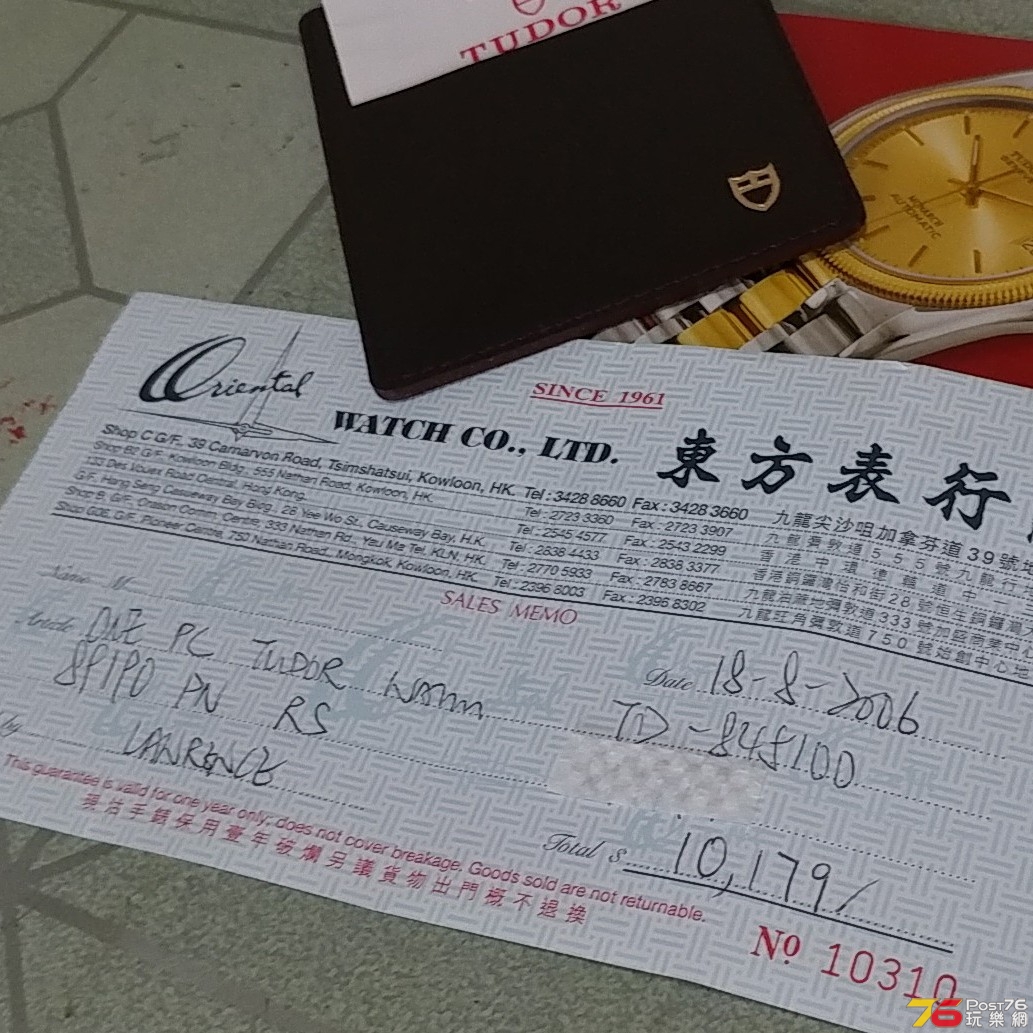 TUDOR
TUDOR
MONARCH
AUTOMATIC
Oriental
SINCE 1961
WATCH CO., LTD. 東方表行
Shop C G/F. 39 Carnarvon Road, Tsimshatsui, Kowloon, HK. Tel : 3428 8660 Fax : 3428 3660 九龍尖沙咀加拿芬道39號地
Shop B2 G/F. Kowloon Bldg., 555 Nathan Road, Kowloon, HK. Tel : 2723 3360 Fax : 2723 3907 九龍彌敦道555號九龍行
133 Des Voeux Road Central, Hong Kong. Tel : 2545 4577 Fax : 2543 2299 香港中環德輔道中一
G/F. Hang Seng Causeway Bay Bldg., 28 Yee Wo St., Causeway Bay, H.K. Tel : 2838 4433 Fax : 2838 3377 香港銅鑼灣怡和街28號恒生銅鑼灣
Shop B, G/F., Centre, 333 Nathan Rd., Yau Ma Tei, KLN, HK. Tel : 2770 5933 Fax : 2783 8667 九龍油麻地彌敦道333號商業中心
G/F. Pioneer Centre, 750 Nathan Road., Mongkok, Kowloon, HK. Tel : 2396 8003 Fax : 2396 8302 九龍旺角彌敦道750號始創中心地
SALES MEMO
Name M
Date 18-8-2006
Article ONE PC TUDOR TD-848100
PN RS
by LAWRENCE
This guarantee is valid for one year only; does not cover breakage. Goods sold are not returnable.
保用壹年破爛另議貨物出門概不退換
Total $ 10,179/
Nº 10310
76 Post76
玩樂網